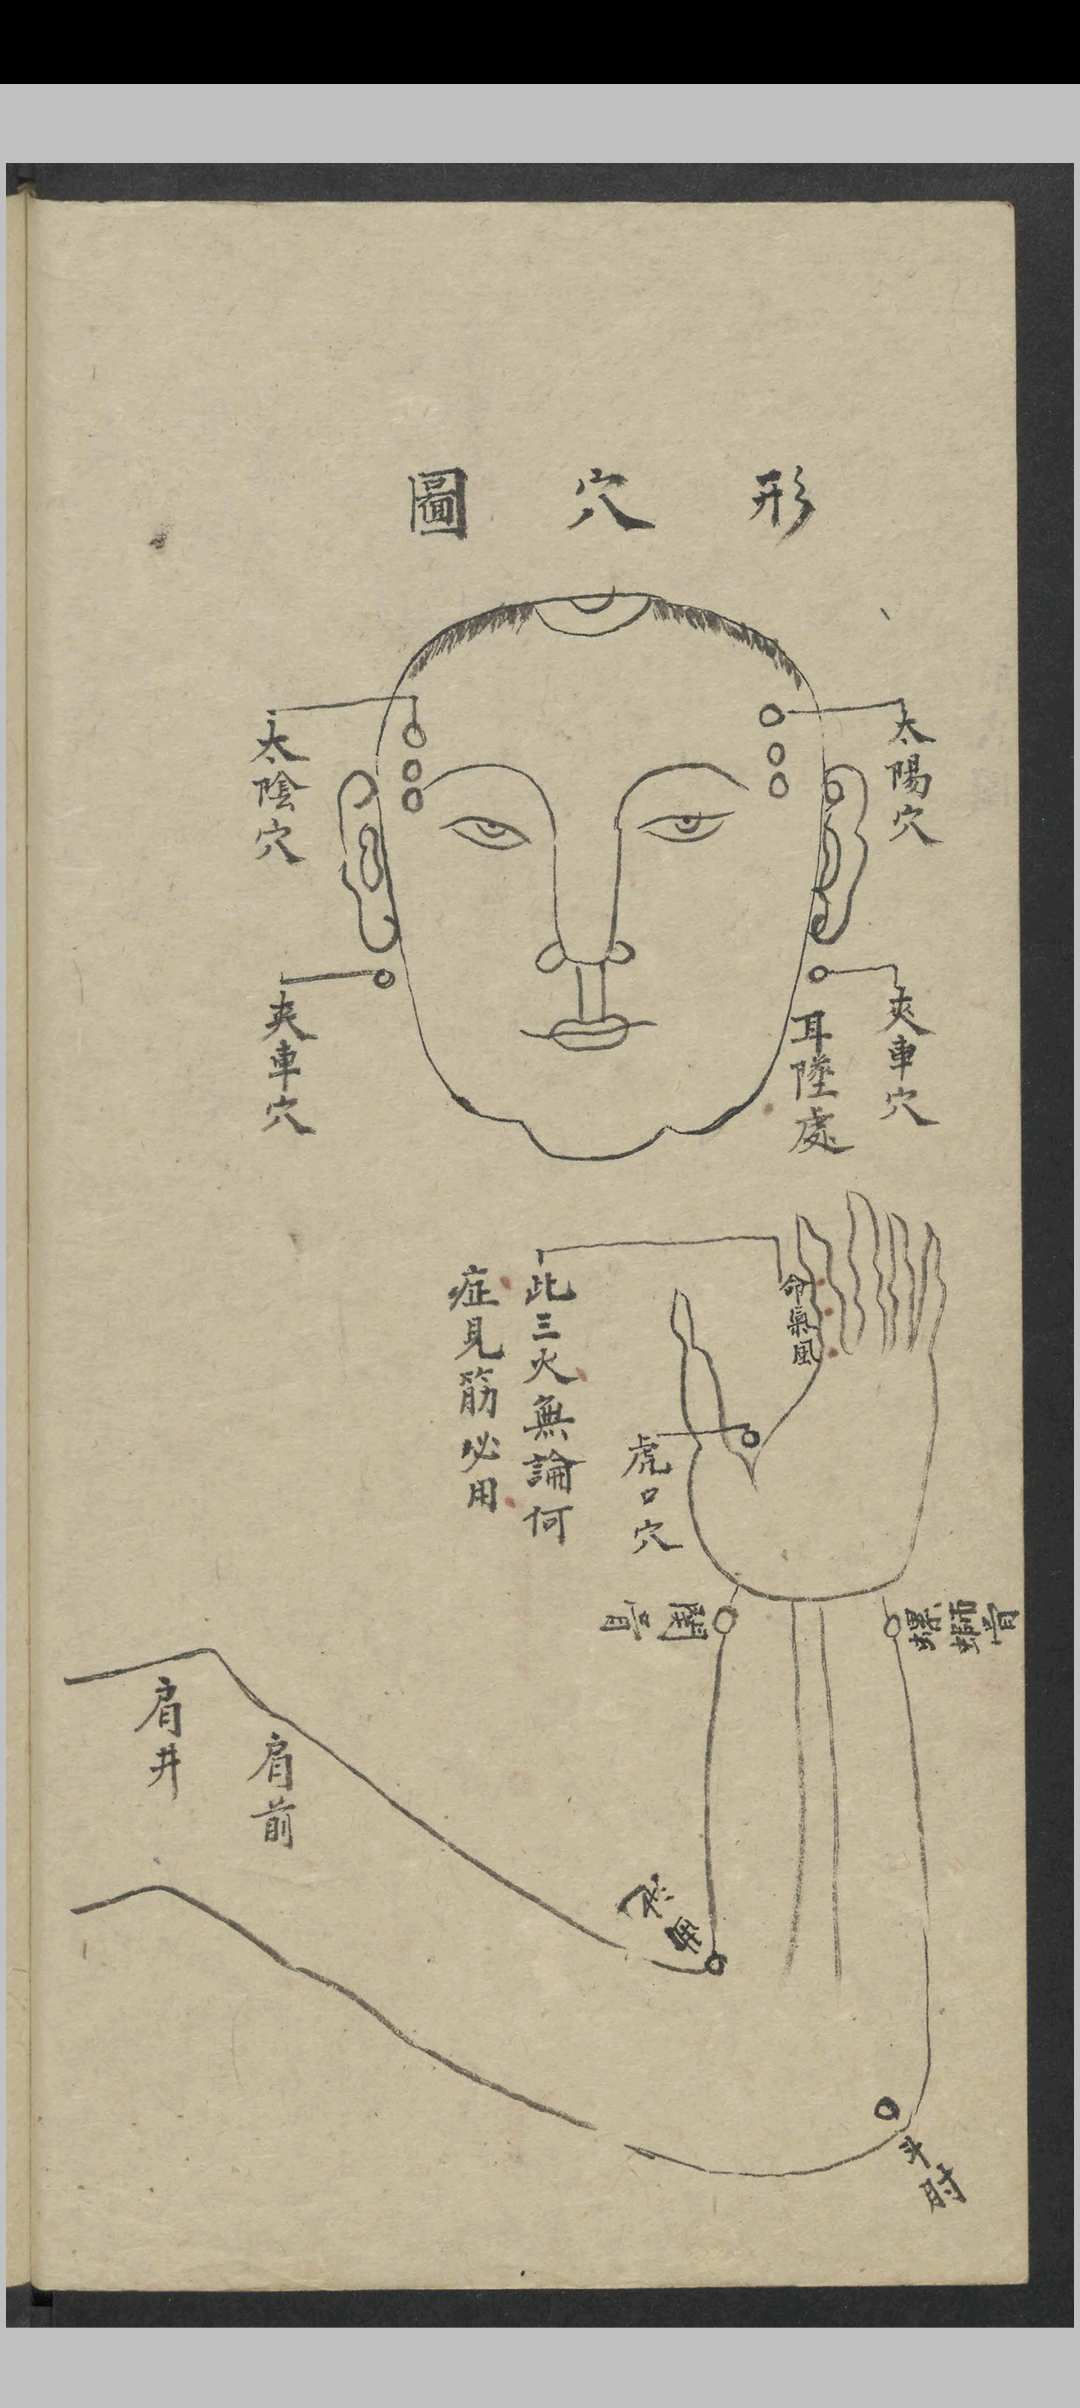 形穴圖
太陽穴
太陰穴
夾車穴
耳陲處
夾車穴
命氣風
此三火無論何
症見筋必用
虎口穴
螺螄骨
肩前
肩井
斗肘